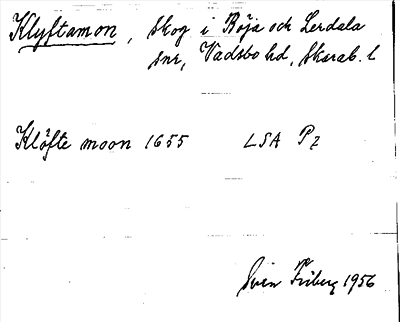 Klyftamon, skog i Böja och Lerdala
snr, Vadsbo hd, Skarab. l
Klöfte moon 1655 LSA P 7
Sven Friberg 1956